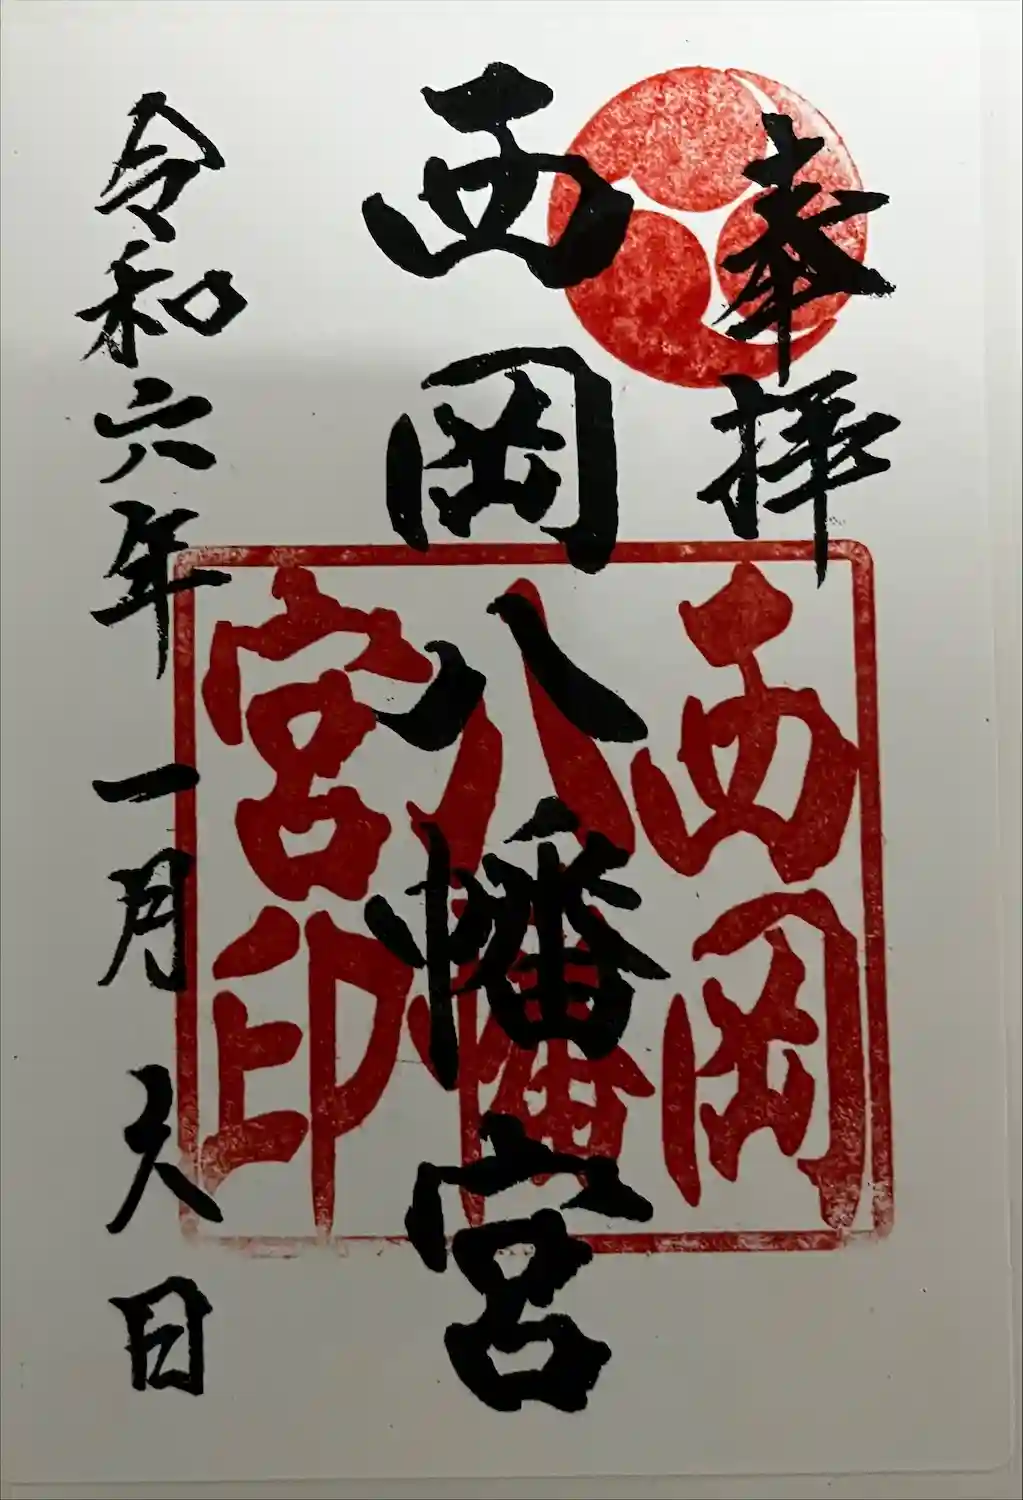 奉拝
西岡八幡宮
西岡
八幡
宮印
令和六年一月 日